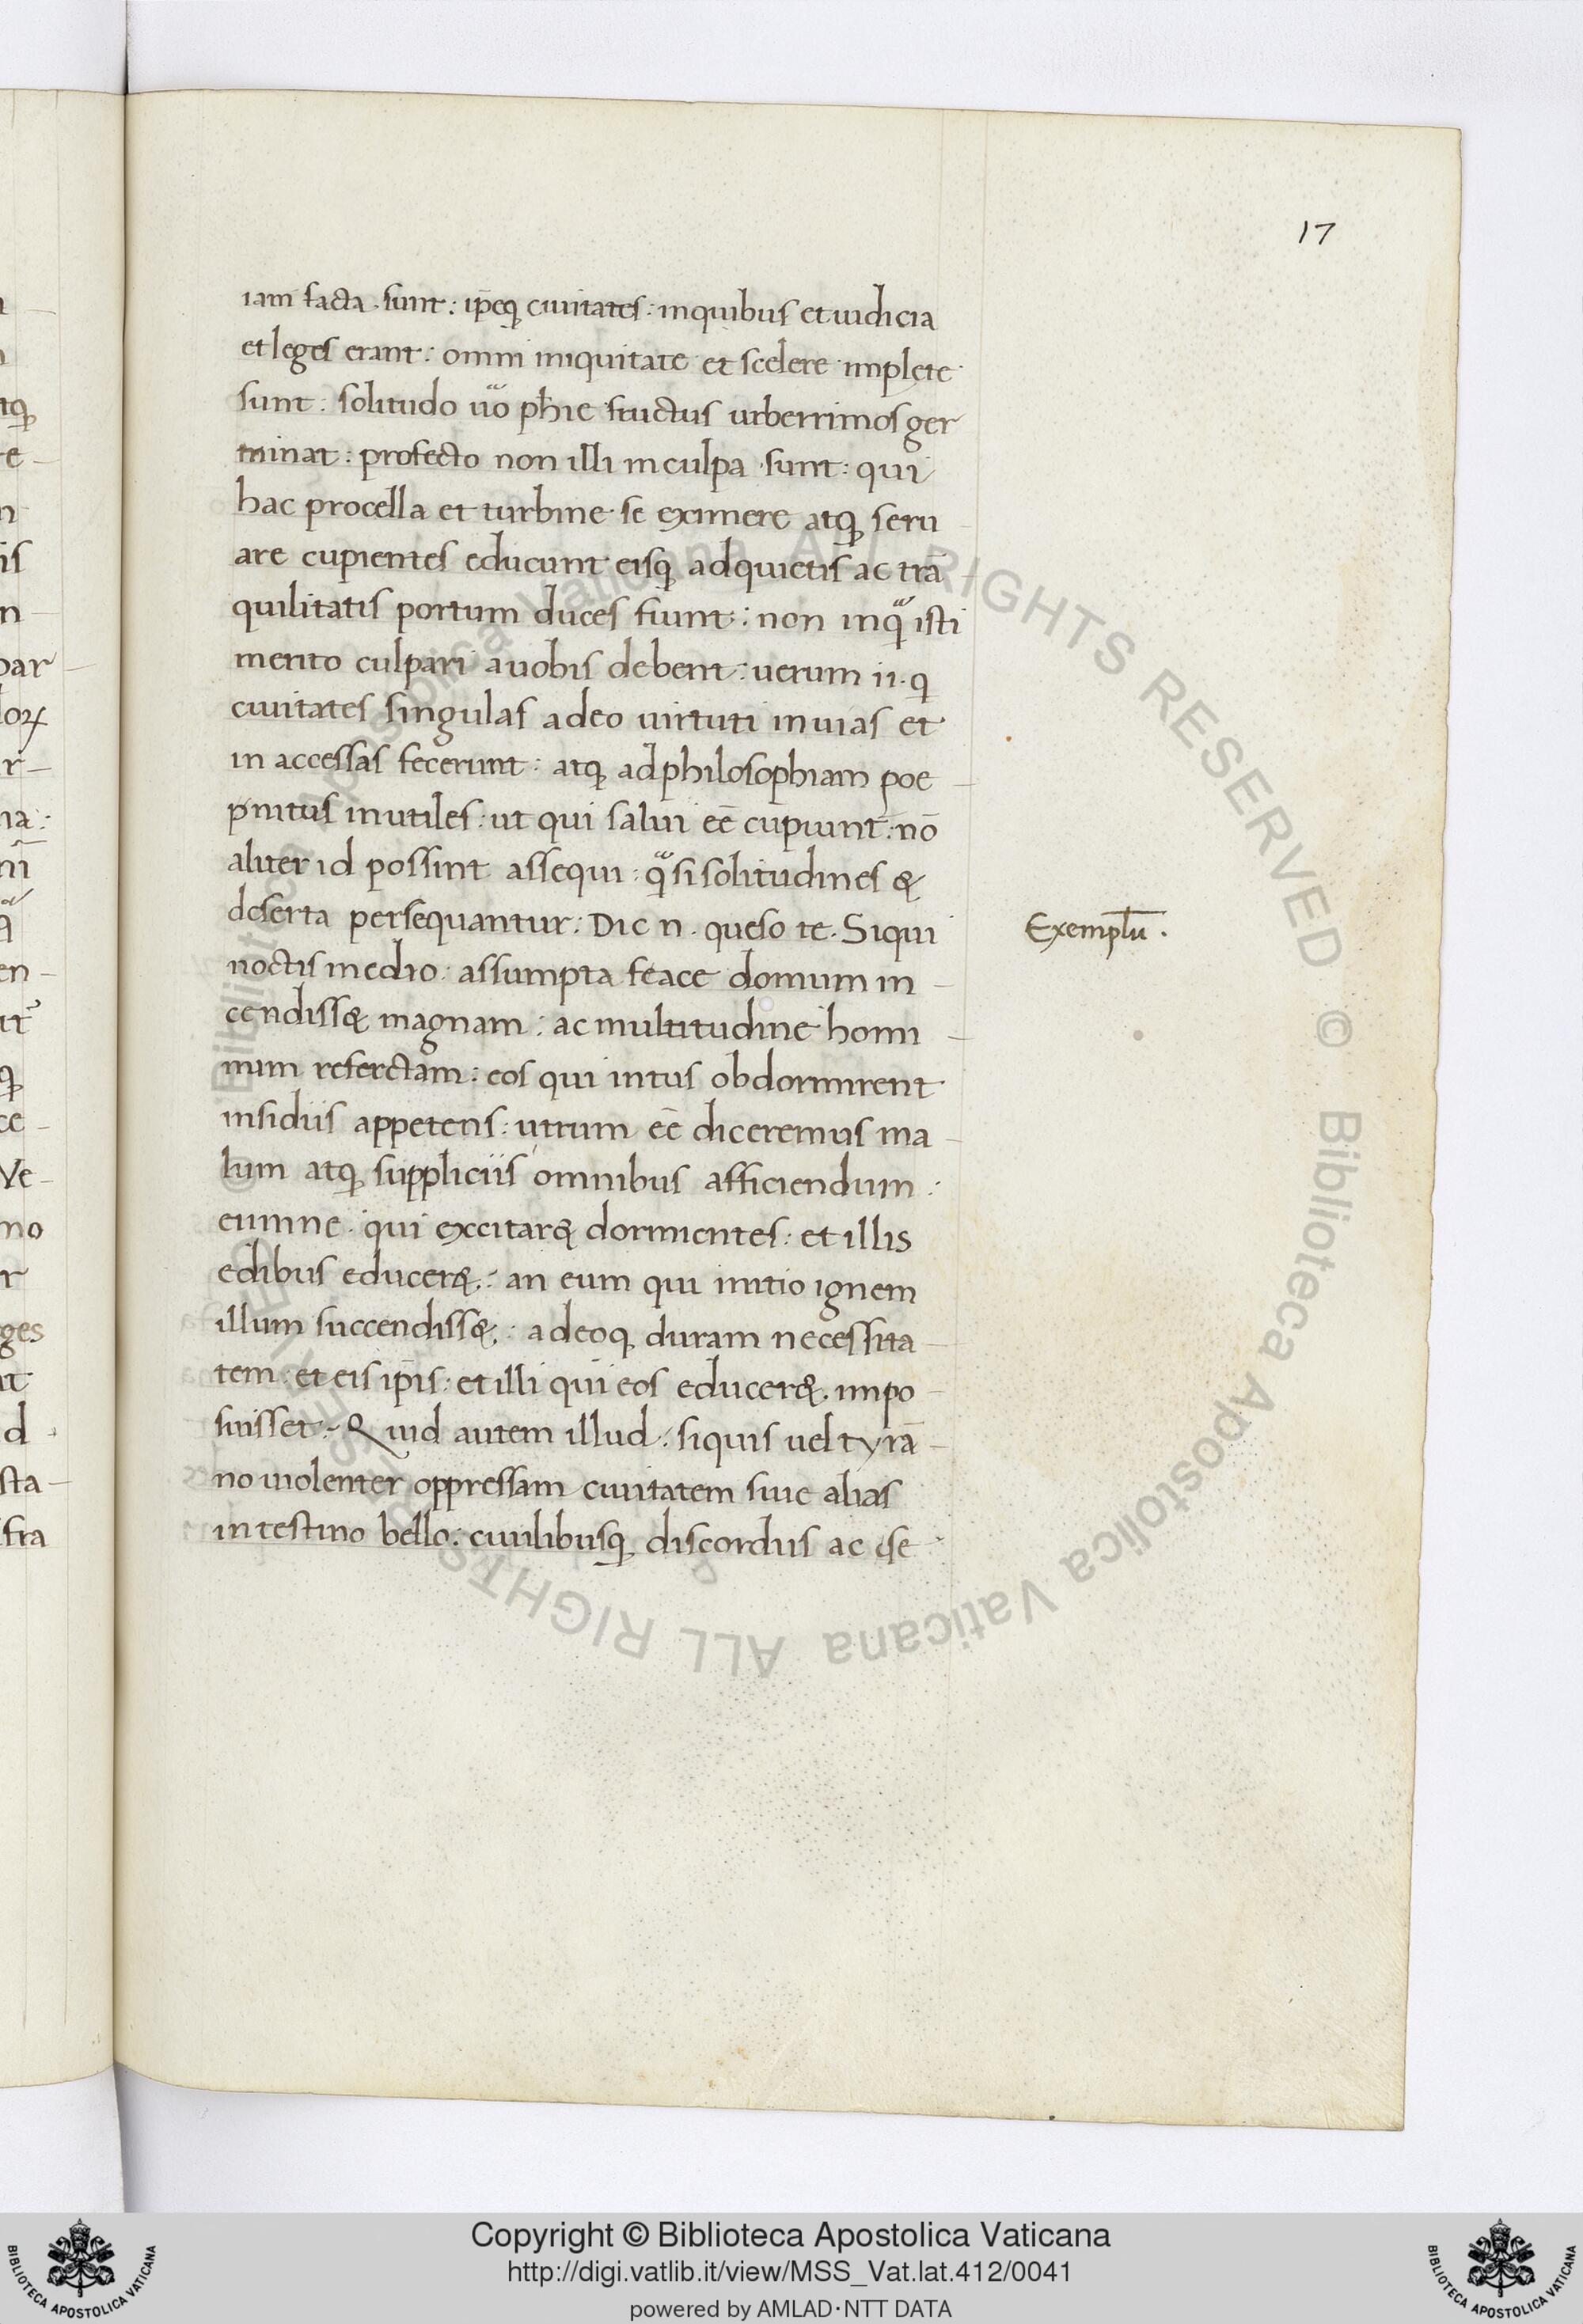 17
iam facta sunt: ip̄eq; ciuitates: in quibus et iudicia
et leges erant: omni iniquitate et scelere implęte
sunt: solitudo ūo ph̄ie fructus urberrimos ger
minat: profecto non illi in culpa sunt: qui
hac procella et turbine se eximere atq; seru
are cupientes educunt eisq; ad quietis ac trā
quilitatis portum duces fiunt: non inqͣ isti
merito culpari a uobis debent: uerum ii. q
ciuitates singulas adeo uirtuti inuias et
in accessas fecerunt: atq; ad philosophiam poe
pnitus inutiles: ut qui salui eē cupiunt: nō
aliter id possint assequi: qͣ si solitudines &
deserta persequantur: Dic n. queso te. Siqui
noctis medio: assumpta feace domum in
cendiss& magnam: ac multitudine homi
num refertam: eos qui intus obdormirent
insidiis appetens: utrum eē diceremus ma
lum atq; suppliciis omnibus afficiendum:
eumne qui excitar& dormientes: et illis
edibus educer&: an eum qui initio ignem
illum succendiss&: adeoq; duram necessita
tem: et eis ip̄is: et illi qui eos educer&. impo
suisset. Quid autem illud: siquis uel tyrā
no uiolenter oppressam ciuitatem siue alias
intestino bello: ciuilibusq; discordiis ac se
Exemplū.
Copyright © Biblioteca Apostolica Vaticana
http://digi.vatlib.it/view/MSS_Vat.lat.412/0041
powered by AMLAD·NTT DATA
BIBLIOTECA APOSTOLICA VATICANA
BIBLIOTECA APOSTOLICA VATICANA
© Biblioteca Apostolica Vaticana ALL RIGHTS RESERVED © Biblioteca Apostolica Vaticana ALL RIGHTS RESERVED